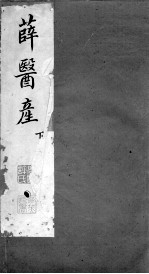 薛醫產
下